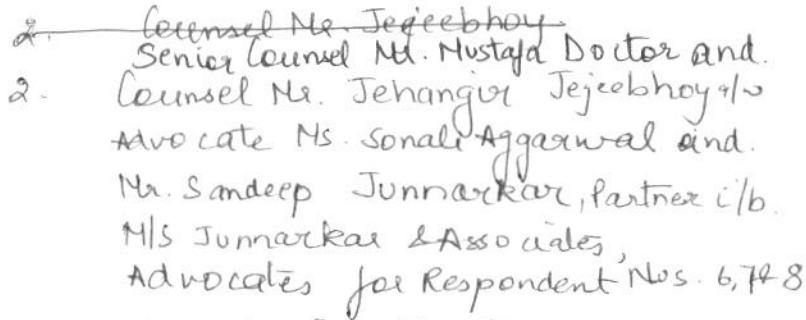 2. Counsel Mr. Jejeebhoy
Senior Counsel Mr. Mustafa Doctor and.
2. Counsel Mr. Jehangir Jejeebhoy a/w
Advocate Ms. Sonali Aggarwal and.
Mr. Sandeep Junnarkar, Partner i/b.
M/s Junnarkar & Associates,
Advocates for Respondent Nos. 6, 7 & 8